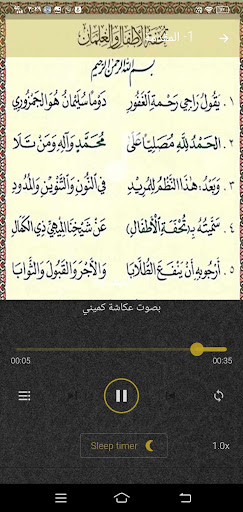 تحفة الأطفال والغلمان
بسم الله الرحمن الرحيم
١ . يَقُولُ رَاجِي رَحْمَةِ الْغَفُورِ دَوْمًا سُلَيْمَانُ هُوَ الْجَمْزُورِي
٢ . الْحَمْدُ لِلَّهِ مُصَلِّيًا عَلَى مُحَمَّدٍ وَآلِهِ وَمَنْ تَلَا
٣ . وَبَعْدُ : هَذَا النَّظْمُ لِلْمُرِيدِ فِي النُّونِ وَالتَّنْوِينِ وَالْمُدُودِ
٤ . سَمَّيْتُهُ بِـ(تُحْفَةِ الْأَطْفَالِ) عَنْ شَيْخِنَا الْمِيهِيِّ ذِي الْكَمَالِ
٥ . أَرْجُو بِهِ أَنْ يَنْفَعَ الطُّلَّابَا وَالْأَجْرَ وَالْقَبُولَ وَالثَّوَابَا
بصوت عكاشة كميني
00:05 00:35
Sleep timer 1.0x